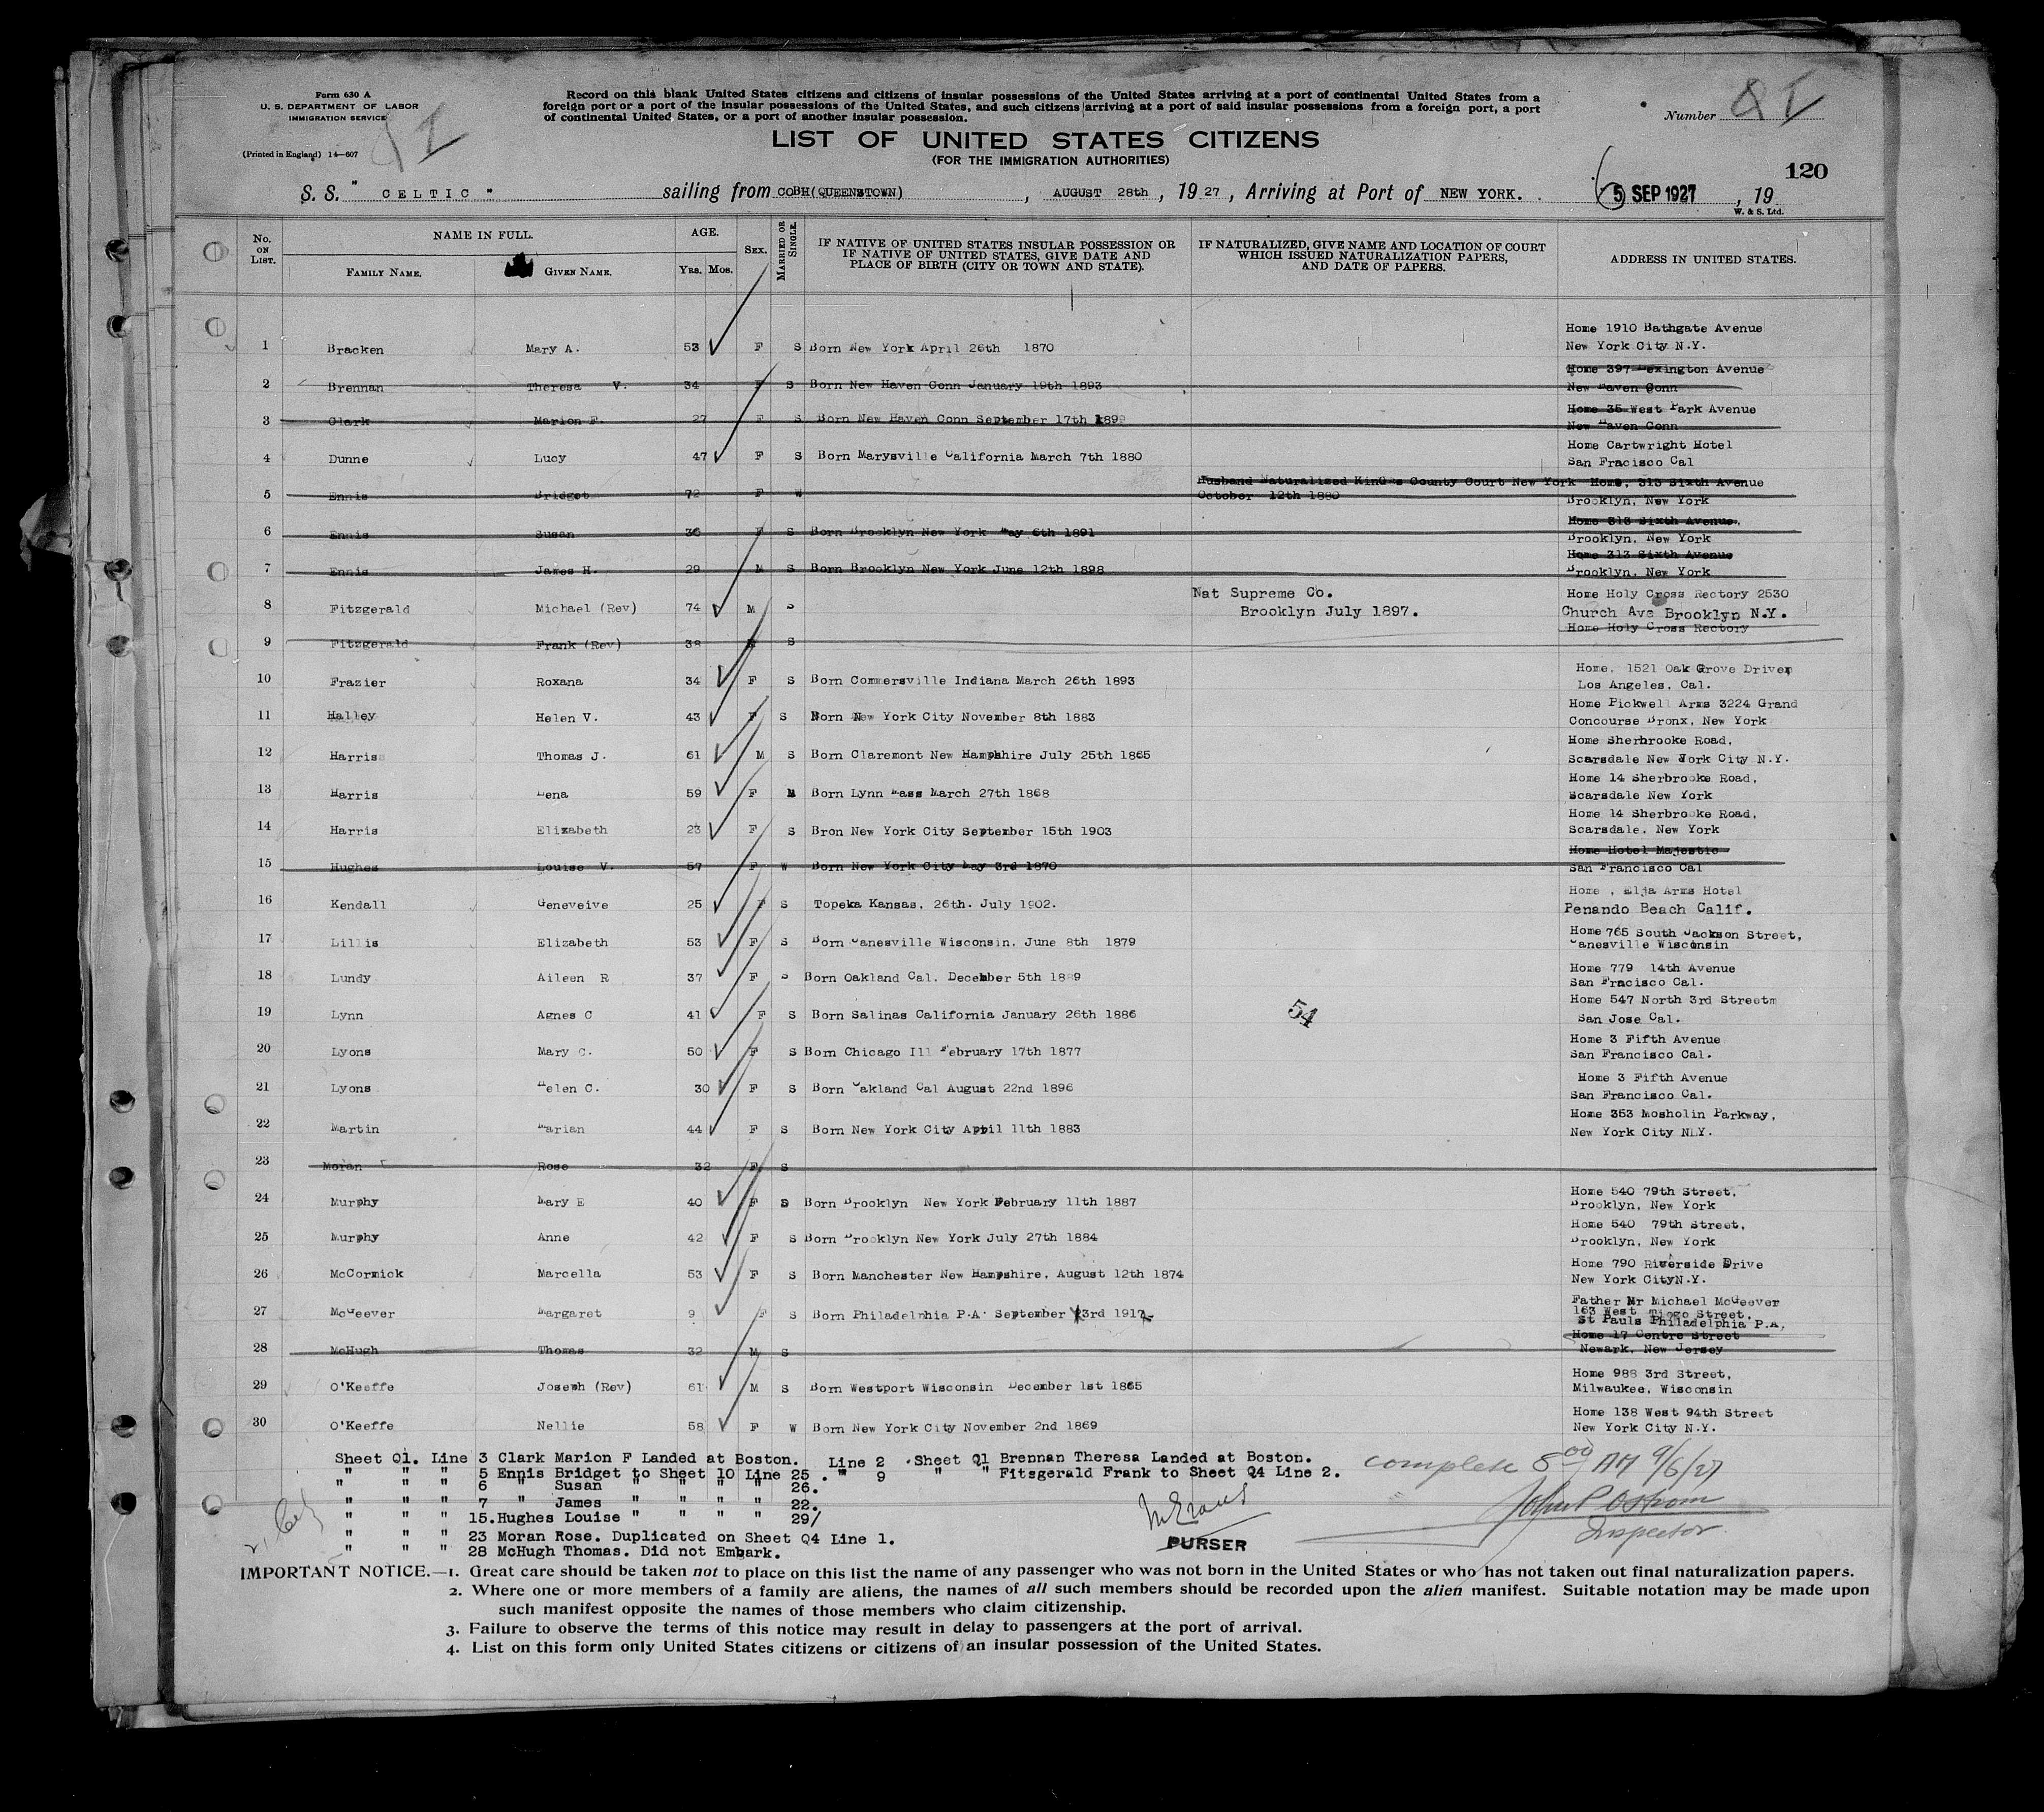 Form 630 A
U. S. DEPARTMENT OF LABOR
IMMIGRATION SERVICE
(Printed in England) 14—607
Record on this blank United States citizens and citizens of insular possessions of the United States arriving at a port of continental United States from a
foreign port or a port of the insular possessions of the United States, and such citizens arriving at a port of said insular possessions from a foreign port, a port
of continental United States, or a port of another insular possession.
LIST OF UNITED STATES CITIZENS
(FOR THE IMMIGRATION AUTHORITIES)
Number Q I
120
S. S. " CELTIC " sailing from COBH(QUEENSTOWN), AUGUST 28th, 1927, Arriving at Port of NEW YORK. 5 SEP 1927, 19
W. & S. Ltd.
No. ON LIST. NAME IN FULL. FAMILY NAME. GIVEN NAME. AGE. YRS. MOS. SEX. MARRIED OR SINGLE. IF NATIVE OF UNITED STATES INSULAR POSSESSION OR IF NATIVE OF UNITED STATES, GIVE DATE AND PLACE OF BIRTH (CITY OR TOWN AND STATE). IF NATURALIZED, GIVE NAME AND LOCATION OF COURT WHICH ISSUED NATURALIZATION PAPERS, AND DATE OF PAPERS. ADDRESS IN UNITED STATES.
1 Bracken Mary A. 53 F S Born New York April 26th 1870 Home 1910 Bathgate Avenue
New York City N.Y.
2 Brennan Theresa V. 34 F S Born New Haven Conn January 19th 1893 Home 397 Lexington Avenue
New Haven Conn
3 Clark Marion F. 27 F S Born New Haven Conn September 17th 1899 Home 35 West Park Avenue
New Haven Conn
4 Dunne Lucy 47 F S Born Marysville California March 7th 1880 Home Cartwright Hotel
San Fracisco Cal
5 Ennis Bridget 72 F W Husband Naturalized Kings County Court New York Home, 313 Sixth Avenue
October 12th 1880 Brooklyn, New York
6 Ennis Susan 36 F S Born Brooklyn New York May 6th 1891 Home 313 Sixth Avenue,
Brooklyn, New York
7 Ennis James H. 29 M S Born Brooklyn New York June 12th 1898 Home 313 Sixth Avenue
Brooklyn, New York
8 Fitzgerald Michael (Rev) 74 M S Nat Supreme Co. Home Holy Cross Rectory 2530
Brooklyn July 1897. Church Ave Brooklyn N.Y.
9 Fitzgerald Frank (Rev) 38 M S Home Holy Cross Rectory
10 Frazier Roxana 34 F S Born Commersville Indiana March 26th 1893 Home, 1521 Oak Grove Drive,
Los Angeles, Cal.
11 Halley Helen V. 43 F S Born New York City November 8th 1883 Home Pickwell Arms 3224 Grand
Concourse Bronx, New York
12 Harris Thomas J. 61 M S Born Claremont New Hampshire July 25th 1865 Home Sherbrooke Road,
Scarsdale New York City N.Y.
13 Harris Lena 59 F M Born Lynn Mass March 27th 1868 Home 14 Sherbrooke Road,
Scarsdale New York
14 Harris Elizabeth 23 F S Bron New York City September 15th 1903 Home 14 Sherbrooke Road,
Scarsdale. New York
15 Hughes Louise V. 57 F W Born New York City May 3rd 1870 Home Hotel Majestic
San Francisco Cal
16 Kendall Geneveive 25 F S Topeka Kansas, 26th. July 1902. Home , Elja Arms Hotel
Penando Beach Calif.
17 Lillis Elizabeth 53 F S Born Janesville Wisconsin. June 8th 1879 Home 765 South Jackson Street,
Janesville Wisconsin
18 Lundy Aileen R 37 F S Born Oakland Cal. December 5th 1889 Home 779 14th Avenue
San Fracisco Cal.
19 Lynn Agnes C 41 F S Born Salinas California January 26th 1886 54 Home 547 North 3rd Streetm
San Jose Cal.
20 Lyons Mary C. 50 F S Born Chicago Ill February 17th 1877 Home 3 Fifth Avenue
San Francisco Cal.
21 Lyons Helen C. 30 F S Born Oakland Cal August 22nd 1896 Home 3 Fifth Avenue
San Francisco Cal.
22 Martin Marian 44 F S Born New York City April 11th 1883 Home 353 Mosholin Parkway,
New York City N.Y.
23 Moran Rose 32 F S
24 Murphy Mary E 40 F S Born Brooklyn New York February 11th 1887 Home 540 79th Street,
Brooklyn, New York
25 Murphy Anne 42 F S Born Brooklyn New York July 27th 1884 Home 540 79th Street,
Brooklyn, New York
26 McCormick Marcella 53 F S Born Manchester New Hampshire, August 12th 1874 Home 790 Riverside Drive
New York CityN.Y.
27 McGeever Margaret 9 F S Born Philadelphia P.A. September 3rd 1917 Father Mr Michael McGeever
163 West Tiogo Street,
St Pauls Philadelphia P.A.
28 McHugh Thomas 32 M S Home 17 Centre Street
Newark, New Jersey
29 O'Keeffe Joseph (Rev) 61 M S Born Westport Wisconsin December 1st 1865 Home 988 3rd Street,
Milwaukee, Wisconsin
30 O'Keeffe Nellie 58 F W Born New York City November 2nd 1869 Home 138 West 94th Street
New York City N.Y.
Sheet Q1. Line 3 Clark Marion F Landed at Boston. Line 2 Sheet Q1 Brennan Theresa Landed at Boston.
" " " 5 Ennis Bridget to Sheet 10 Line 25. " 9 " " Fitsgerald Frank to Sheet Q4 Line 2.
" " " 6 " Susan " " " " 26.
" " " 7 " James " " " " 22.
" " " 15. Hughes Louise " " " " 29/
" " " 23 Moran Rose. Duplicated on Sheet Q4 Line 1.
" " " 28 McHugh Thomas. Did not Embark.
complete 8 00 AM 9/6/27
John P Ostrom
Inspector.
M Evans
PURSER
IMPORTANT NOTICE.—1. Great care should be taken not to place on this list the name of any passenger who was not born in the United States or who has not taken out final naturalization papers.
2. Where one or more members of a family are aliens, the names of all such members should be recorded upon the alien manifest. Suitable notation may be made upon
such manifest opposite the names of those members who claim citizenship.
3. Failure to observe the terms of this notice may result in delay to passengers at the port of arrival.
4. List on this form only United States citizens or citizens of an insular possession of the United States.